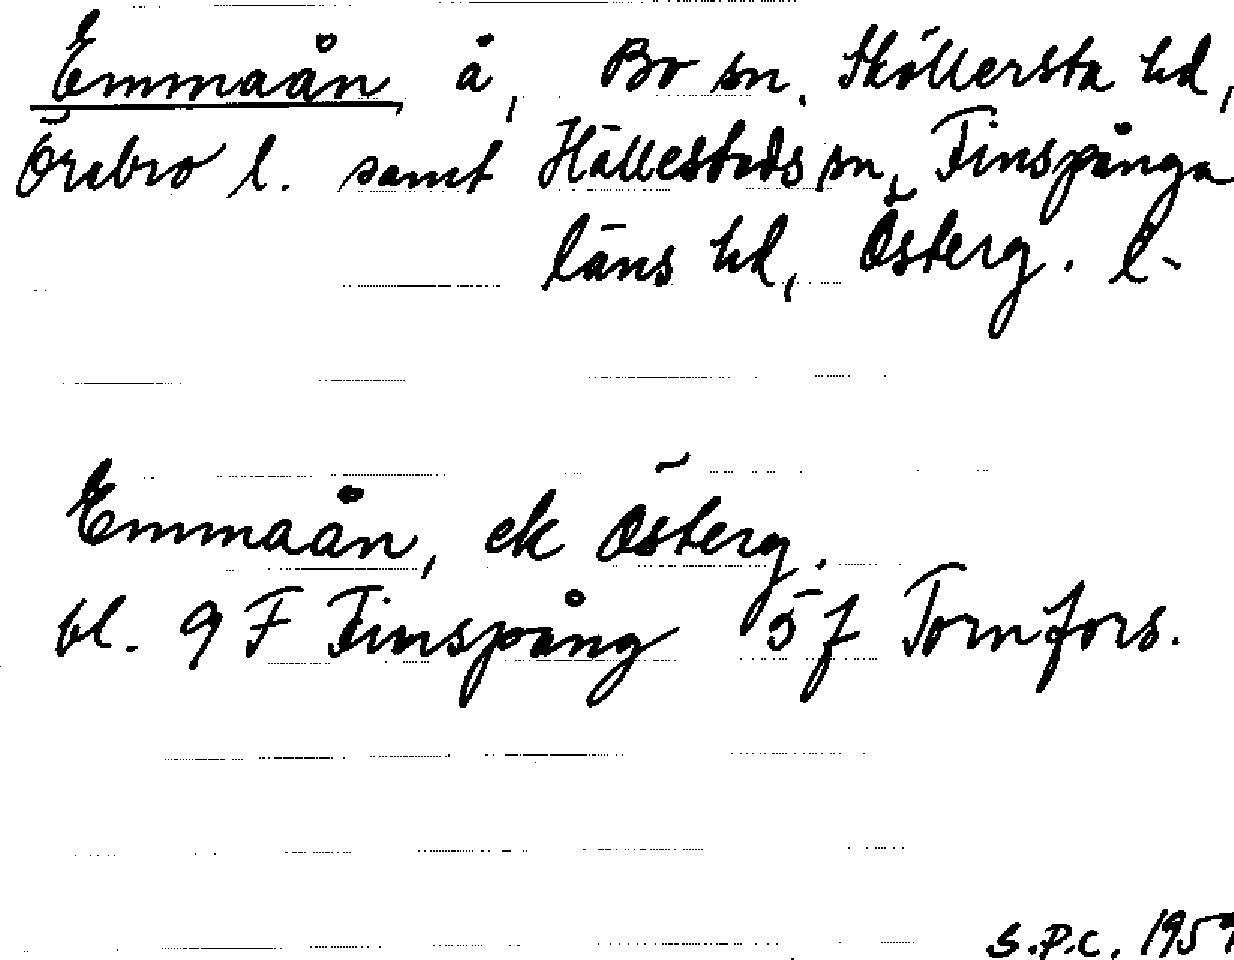 Emmaån å, Bo sn, Sköllersta hd,
Örebro l. samt Hällestads sn, Finspånga
läns hd, Österg. l.
Emmaån, ek Österg.
bl. 9 F Finspång 5 f Tornfors.
S.P.C. 1959